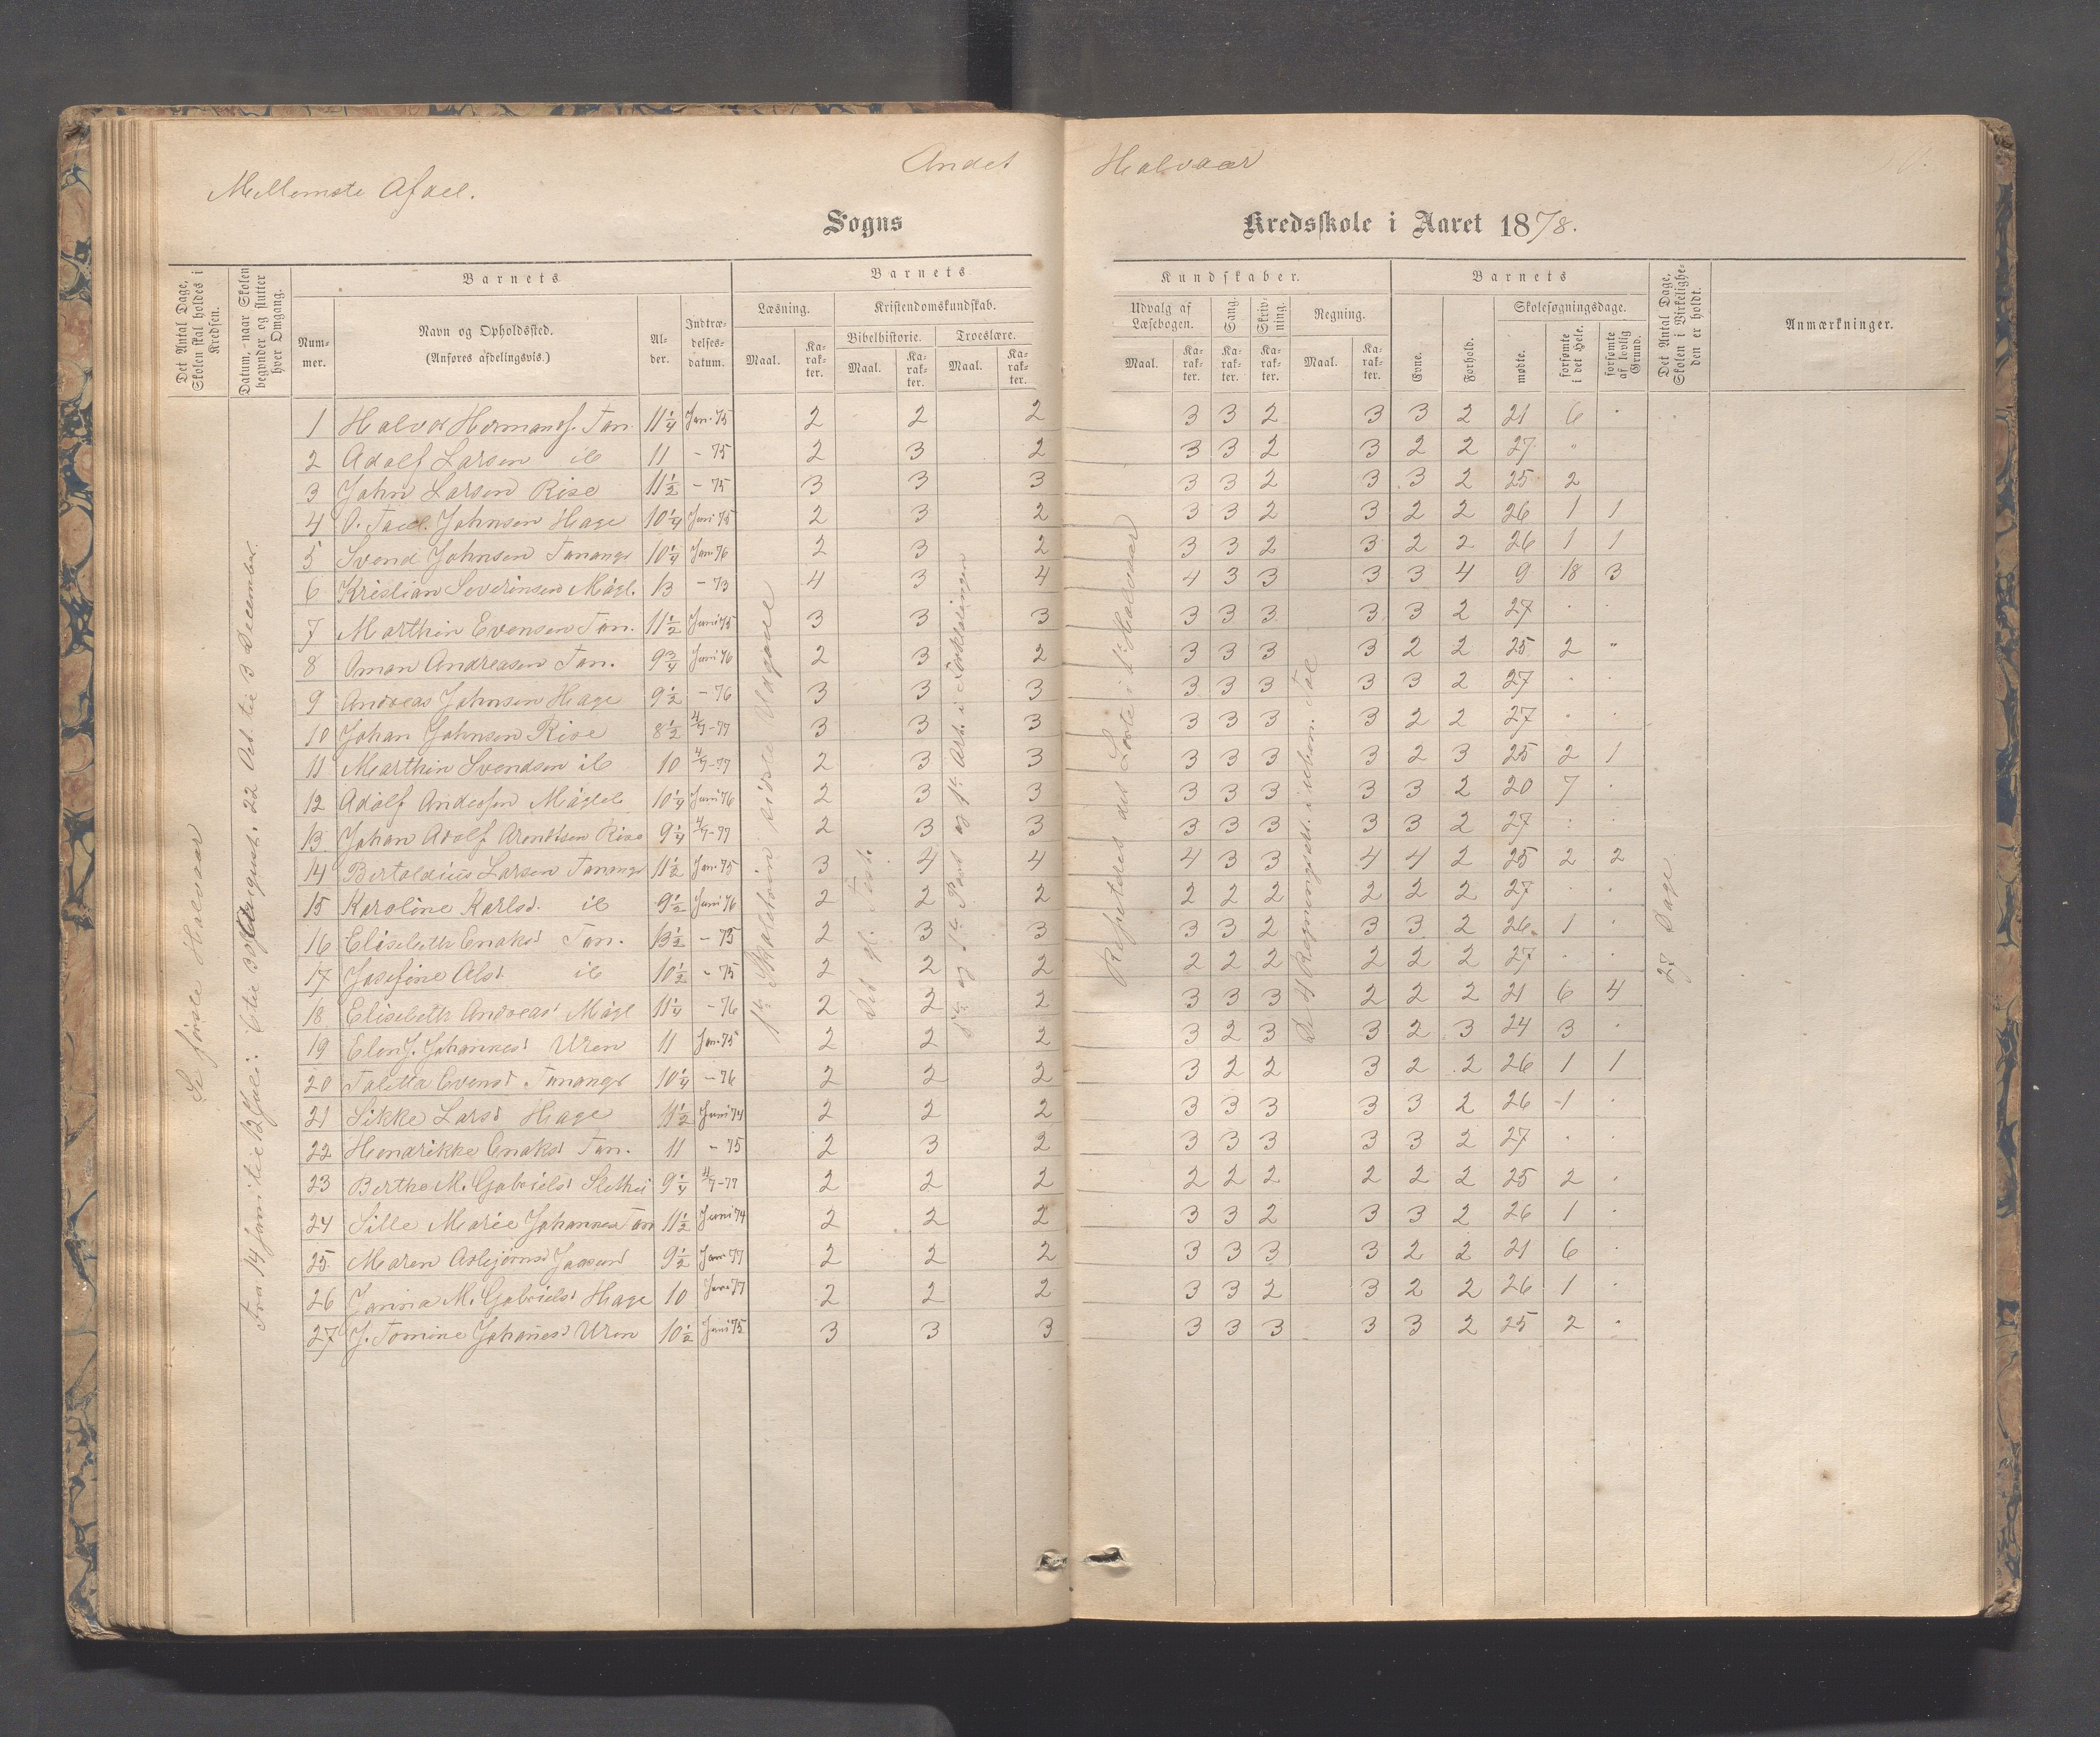 Mellemste Afdel.
Andet Halvaar
Sogns Kredsskole i Aaret 1878.
Det Antal Dage, Skolen skal holdes i Kredsen.
Datum, naar Skolen begynder og slutter hver Omgang.
Barnets
Nummer.
Navn og Opholdssted.
(Anføres afdelingsvis.)
Alder.
Indtrædelsesdatum.
Barnets Kundskaber.
Læsning.
Maal.
Karakter.
Kristendomskundskab.
Bibelhistorie.
Maal.
Karakter.
Troeslære.
Maal.
Karakter.
Udvalg af Læsebogen.
Maal.
Karakter.
Sang.
Karakter.
Skrivning.
Karakter.
Regning.
Maal.
Karakter.
Barnets
Evne.
Forhold.
Skolesøgningsdage.
mødte.
forsømte i det Hele.
forsømte af lovlig Grund.
Det Antal Dage, Skolen i Virkeligheden er holdt.
Anmærkninger.
Se første Halvaar
27 Dage
1 Halvor Hermands. Tan. 11 1/4 Jan. 75 2 2 2 3 3 2 3 3 2 21 6 .
2 Adolf Larsen ib 11 - 75 2 3 2 3 3 2 3 2 2 27 "
3 John Larsen Rise 11 1/2 - 75 3 3 3 3 3 2 3 3 2 25 2
4 O. Johnsen Hage 10 1/4 Juni 75 2 3 2 3 3 2 3 2 2 26 1 1
5 Svend Johnsen Tanange 10 1/4 Jan 76 2 3 2 3 3 2 3 2 2 26 1 1
6 Kristian Severinsen Mågl. 13 - 73 4 3 4 4 3 3 3 3 4 9 18 3
7 Marthin Evensen Tan. 11 1/2 Juni 75 3 3 3 3 3 3 3 3 2 27 . .
8 Oman Andreasen Tan. 9 3/4 Juni 76 2 3 2 3 3 3 3 2 2 25 2 "
9 Andreas Johnsen Hage 9 1/2 - 76 3 3 3 3 3 3 3 3 2 27 . .
10 Johan Johnsen Rise 8 1/2 4/7 - 77 3 3 3 3 3 3 3 2 2 27 . .
11 Marthin Svendsen ib 10 4/7 - 77 2 3 3 3 3 3 3 2 3 25 2 1
12 Adolf Andersen Måglel 10 1/4 Juni 76 2 3 3 3 3 3 3 3 2 20 7 .
13 Johan Adolf Arentsen Rise 9 1/4 4/7 - 77 2 3 3 3 3 3 3 3 2 27 . .
14 Bertoldius Larsen Tanange 11 1/2 Jan. 75 3 4 4 4 3 3 4 4 2 25 2 2
15 Karoline Karlsd. ib 9 1/2 Juni 76 2 2 2 2 2 2 2 2 2 27 . .
16 Elisebeth Enaksd Tan. 13 1/2 - 75 2 3 3 3 3 2 3 3 2 26 1 .
17 Josefine Olsd ib 10 1/2 - 75 2 2 2 2 2 2 2 2 2 27 . .
18 Elisebeth Andreasd Mågl 11 1/4 - 76 2 2 2 3 3 3 2 2 2 21 6 4
19 Elen J. Johannesd Uren 11 Jan. 75 2 2 2 3 2 3 3 2 3 24 3 .
20 Taletta Evensd Tanange 10 1/4 - 76 2 2 2 3 2 2 3 2 2 26 1 1
21 Sikke Larsd Hage 11 1/2 Juni 74 2 2 2 3 3 3 3 3 2 26 1 .
22 Hendrikke Enaksd Tan. 11 - 75 2 3 2 3 3 3 3 3 2 27 . .
23 Berthe M. Gabrielsd 9 1/4 4/7 - 77 2 2 2 2 2 2 2 2 2 25 2 .
24 Sille Marie Johannesd Tan 11 1/2 Juni 74 2 2 2 3 3 2 3 3 2 26 1 .
25 Maren Asbjørnsd Jaasund 9 1/2 Jan 77 2 2 2 3 3 3 3 2 2 21 6 .
26 Janna M. Gabrielsd Hage 10 Jan 77 2 2 2 3 3 2 3 2 2 26 1 .
27 J. Tomine Johanesd Uren 10 1/2 Juni 75 3 3 3 3 3 3 3 3 2 25 2 .